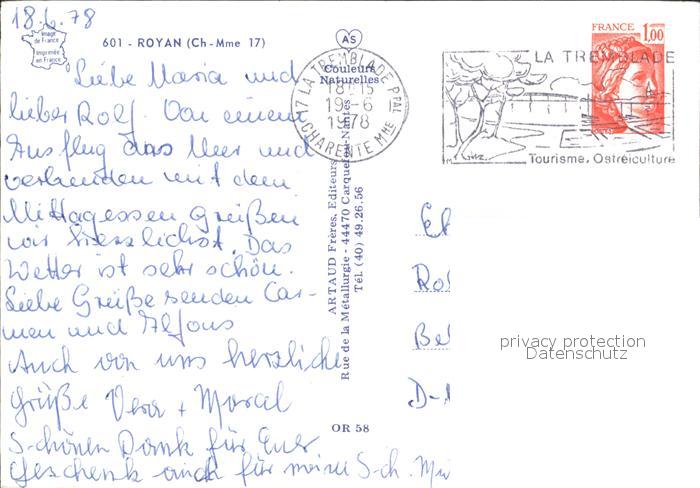 18.6.78
Image de France
Imprimée en France
601 - ROYAN (Ch-Mme 17)
AS
Couleurs Naturelles
17 LA TREMBLADE PPAL
18H15
19-6
1978
CHARENTE MME
FRANCE 1,00
LA TREMBLADE
Tourisme, Ostréiculture
Liebe Maria und
lieber Rolf. Von einem
Ausflug ans Meer und
verbunden mit dem
Mittagessen Grüßen
wir herzlichst. Das
Wetter ist sehr schön.
Liebe Grüße senden Car-
men und Alfons
Auch von uns herzliche
Grüße Vera + Marcal
Schönen Dank für Euer
Geschenk auch für meine Sch. Mu
ARTAUD Frères, Editeurs
Rue de la Métallurgie - 44470 Carquefou-Nantes
Tél. (40) 49.26.56
OR 58
Rol
D-
privacy protection
Datenschutz